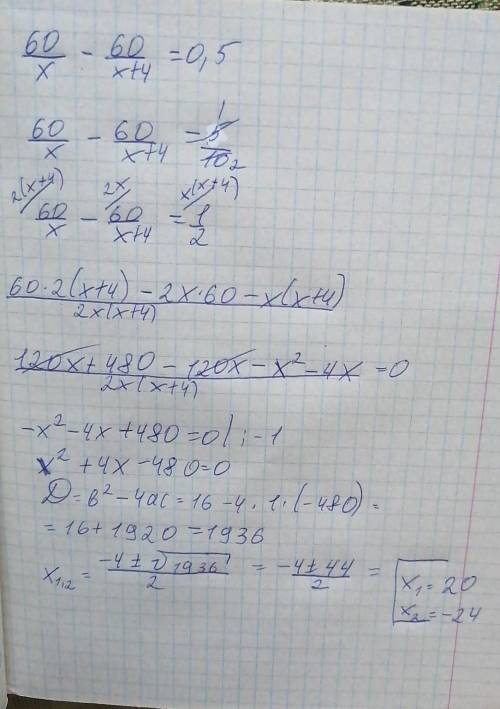 60/x - 60/x+4 = 0,5
60/x - 60/x+4 = 5/10 1 2
2(x+4) 2x x(x+4)
60/x - 60/x+4 = 1/2
60·2(x+4) - 2x·60 - x(x+4)
2x(x+4)
120x + 480 - 120x - x² - 4x = 0
2x(x+4)
-x² - 4x + 480 = 0 | : -1
x² + 4x - 480 = 0
D = в² - 4ac = 16 - 4 · 1 · (-480) =
= 16 + 1920 = 1936
x1,2 = -4 ± √1936 / 2 = -4 ± 44 / 2 = x1 = 20
x2 = -24